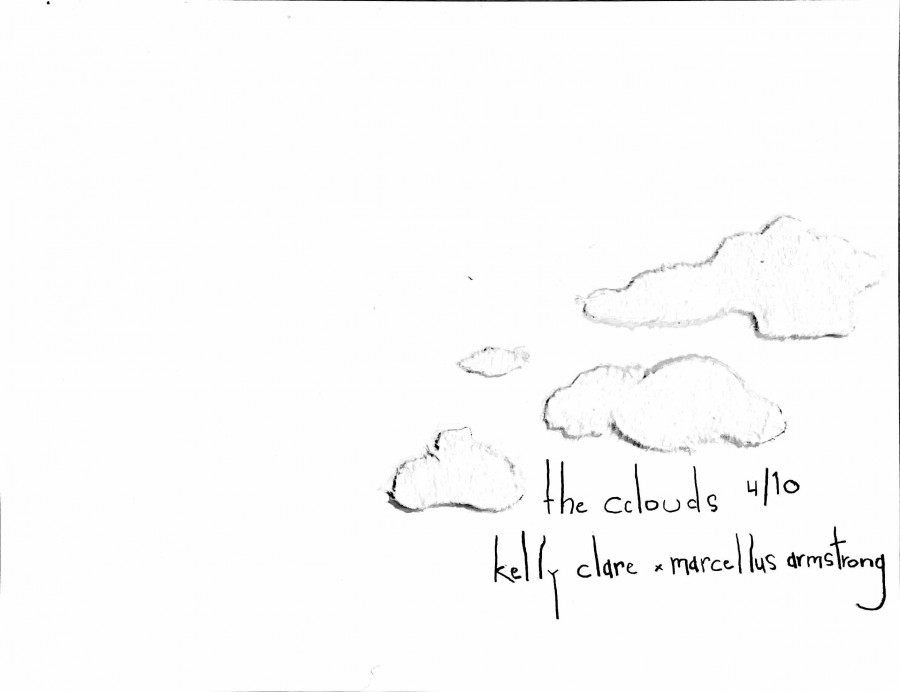 the cclouds 4/10
kelly clare x marcellus armstrong